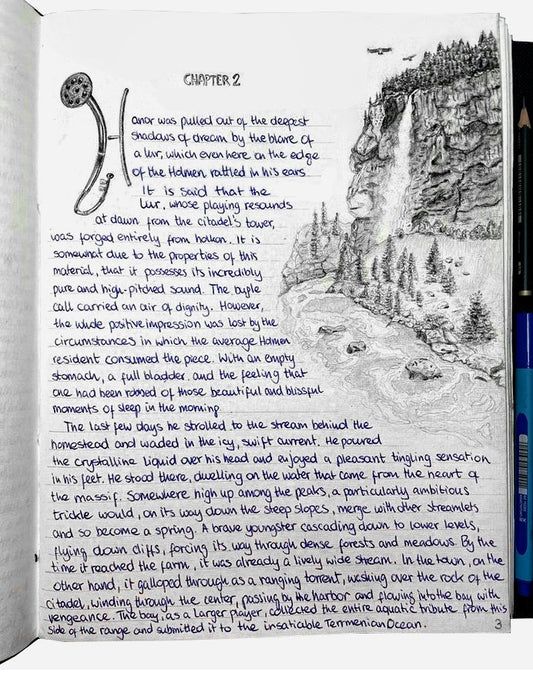 CHAPTER 2
Hanor was pulled out of the deepest
shadows of dream by the blare of
a lur, which even here on the edge
of the Halmen rattled in his ears.
It is said that the
lur, whose playing resounds
at dawn from the citadel's tower,
was forged entirely from halkon. It is
somewhat due to the properties of this
material, that it possesses its incredibly
pure and high-pitched sound. The bugle
call carried an air of dignity. However,
the whole positive impression was lost by the
circumstances in which the average Halmen
resident consumed the piece. With an empty
stomach, a full bladder. and the feeling that
one had been robbed of those beautiful and blissful
moments of sleep in the morning.
The last few days he strolled to the stream behind the
homestead and waded in the icy, swift current. He poured
the crystalline liquid over his head and enjoyed a pleasant tingling sensation
in his feet. He stood there, dwelling on the water that came from the heart of
the massif. Somewhere high up among the peaks, a particularly ambitious
trickle would, on its way down the steep slopes, merge with other streamlets
and so become a spring. A brave youngster cascading down to lower levels,
flying down cliffs, forcing its way through dense forests and meadows. By the
time it reached the farm, it was already a lively wide stream. In the town, on the
other hand, it galloped through as a ranging torrent, washing over the rock of the
citadel, winding through the center, passing by the harbor and flowing into the bay with
vengeance. The bay, as a larger player, collected the entire aquatic tribute from this
side of the range and submitted it to the insatiable Terrmenian Ocean.
3